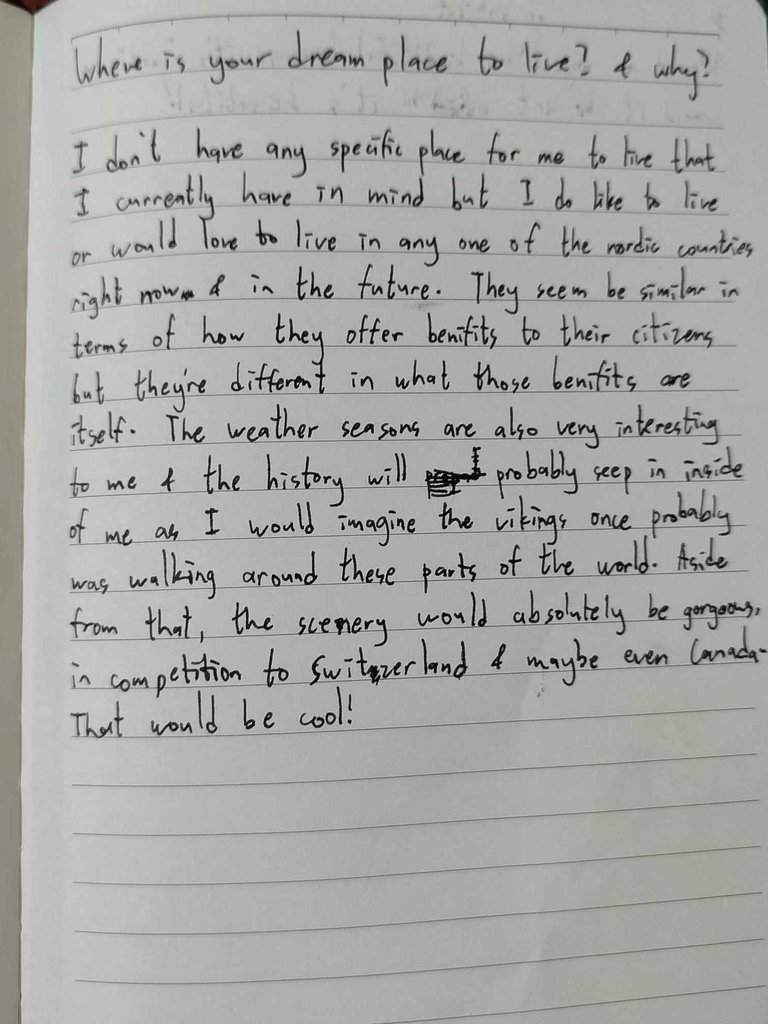 Where is your dream place to live? & why?
I don't have any specific place for me to live that
I currently have in mind but I do like to live
or would love to live in any one of the nordic countries
right now & in the future. They seem be similar in
terms of how they offer benifits to their citizens
but they're different in what those benifits are
itself. The weather seasons are also very interesting
to me & the history will probably seep in inside
of me as I would imagine the vikings once probably
was walking around these parts of the world. Aside
from that, the scenery would absolutely be gorgeous,
in competition to Switzerland & maybe even Canada.
That would be cool!